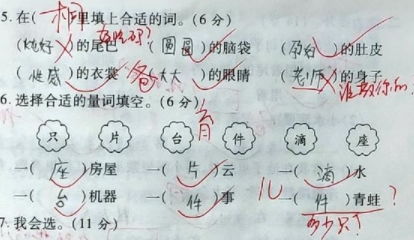 5.在(  )里填上合适的词。(6分)
( 她好 )的尾巴 ( 圆圆 )的脑袋 ( 雪白 )的肚皮
(  )的衣裳 ( 大大 )的眼睛 ( 老师 )的身子
6.选择合适的量词填空。(6分)
只 片 台 件 滴 座
一( 座 )房屋 一( 片 )云 一( 滴 )水
一( 台 )机器 一( 件 )事 一( 件 )青蛙?
多少只?
7.我会选。(11分)